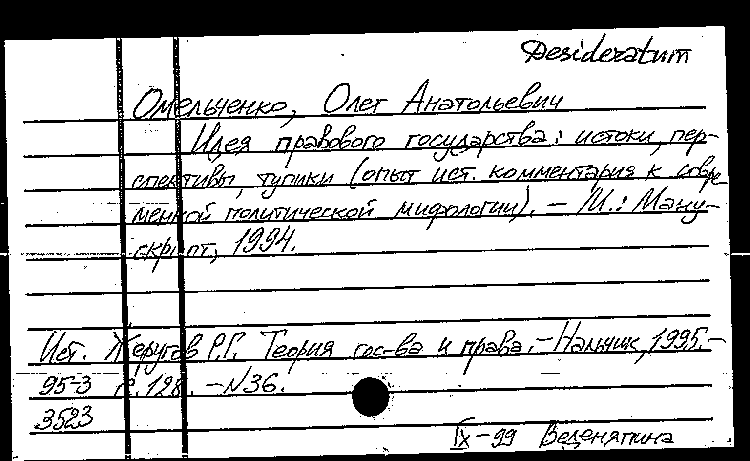 Desideratum
Омельченко, Олег Анатольевич
Идея правового государства: истоки, пер-
спективы, тупики (опыт ист. комментария к совре
менной политической мифологии). – М.: Ману-
скрипт, 1994.
Ист. Жеругов Р.Г. Теория гос-ва и права. – Нальчик, 1995. –
95-3 с. 128. – N36.
3523
IX-99 Веденяпина